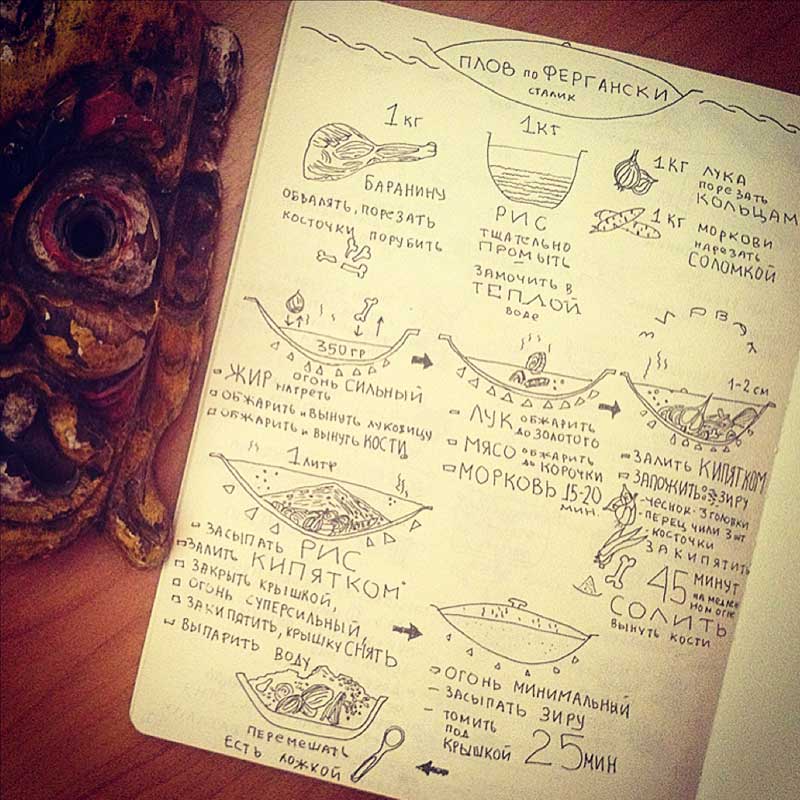 ПЛОВ по ФЕРГАНСКИ
СТАЛИК
1 кг
БАРАНИНУ
ОБВАЛЯТЬ, ПОРЕЗАТЬ
КОСТОЧКИ ПОРУБИТЬ
1 кг
РИС
ТЩАТЕЛЬНО
ПРОМЫТЬ
ЗАМОЧИТЬ В
ТЕПЛОЙ
ВОДЕ
1 КГ ЛУКА
ПОРЕЗАТЬ
КОЛЬЦАМ
1 КГ МОРКОВИ
НАРЕЗАТЬ
СОЛОМКОЙ
350 ГР
- ЖИР НАГРЕТЬ ОГОНЬ СИЛЬНЫЙ
ОБЖАРИТЬ и ВЫНУТЬ ЛУКОВИЦУ
ОБЖАРИТЬ и ВЫНУТЬ КОСТИ
- ЛУК ОБЖАРИТЬ ДО ЗОЛОТОГО
МЯСО ОБЖАРИТЬ ДО КОРОЧКИ
МОРКОВЬ 15-20 МИН.
ЗИРВАК
1-2 см
ЗАЛИТЬ КИПЯТКОМ
ЗАЛОЖИТЬ ЗИРУ
- ЧЕСНОК 3 ГОЛОВКИ
- ПЕРЕЦ ЧИЛИ 3 ШТ
- КОСТОЧКИ
ЗАКИПЯТИТЬ
45 МИНУТ
НА МЕДЛЕННОМ ОГНЕ
СОЛИТЬ
ВЫНУТЬ КОСТИ
1 ЛИТР
ЗАСЫПАТЬ РИС
ЗАЛИТЬ КИПЯТКОМ
ЗАКРЫТЬ КРЫШКОЙ,
ОГОНЬ СУПЕРСИЛЬНЫЙ,
ЗАКИПЯТИТЬ, КРЫШКУ СНЯТЬ
ВЫПАРИТЬ ВОДУ
ОГОНЬ МИНИМАЛЬНЫЙ
- ЗАСЫПАТЬ ЗИРУ
- ТОМИТЬ ПОД КРЫШКОЙ 25 МИН
ПЕРЕМЕШАТЬ
ЕСТЬ ЛОЖКОЙ